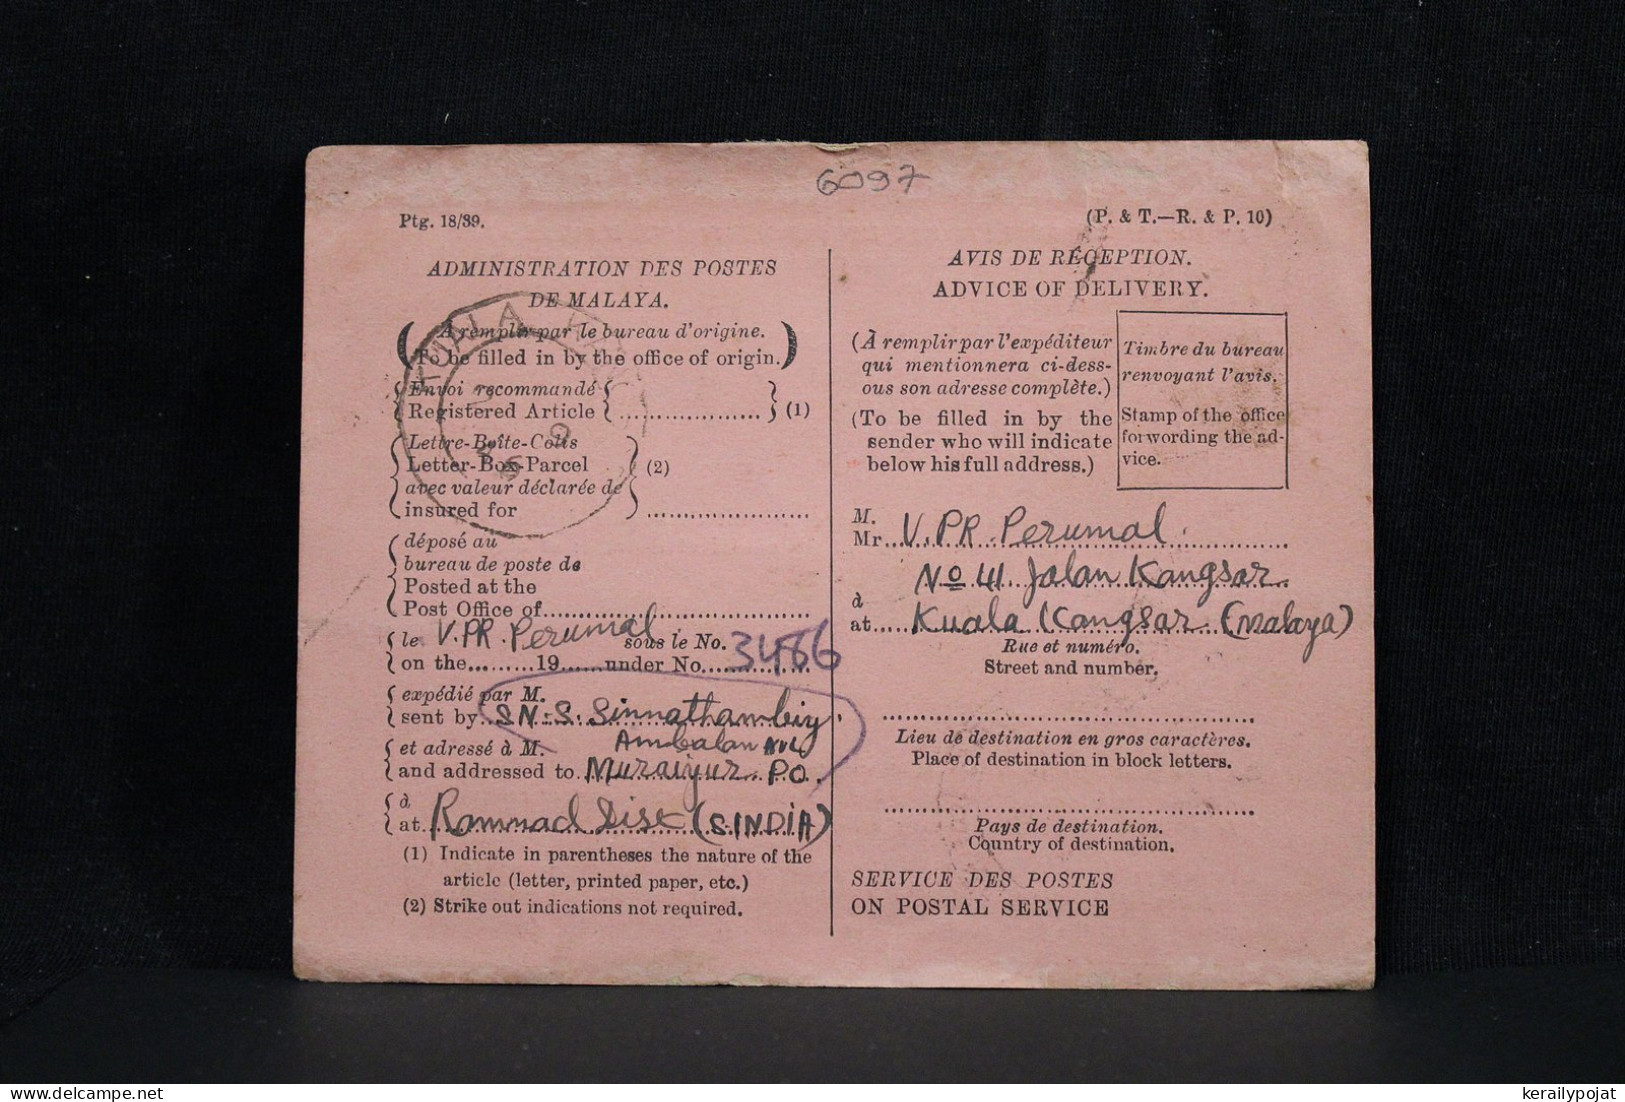 6097
Ptg. 18/39.
(P. & T.—R. & P. 10)
ADMINISTRATION DES POSTES
DE MALAYA.
(À remplir par le bureau d'origine.
To be filled in by the office of origin.)
Envoi recommandé
Registered Article { .................... } (1)
Lettre-Boîte-Colis
Letter-Box-Parcel
avec valeur déclarée de
insured for
(2)
déposé au
bureau de poste de
Posted at the
Post Office of
V. PR. Perumal
le sous le No.
on the.........19......under No. 3486
expédié par M.
sent by SN. S. Sinnathambiy.
et adressé à M. Ambalan
and addressed to Muraiyur P.O.
à
at Ramnad Dist (S.INDIA)
(1) Indicate in parentheses the nature of the
article (letter, printed paper, etc.)
(2) Strike out indications not required.
KUALA
AVIS DE RÉCEPTION.
ADVICE OF DELIVERY.
(À remplir par l'expéditeur
qui mentionnera ci-dess-
ous son adresse complète.)
(To be filled in by the
sender who will indicate
below his full address.)
Timbre du bureau
renvoyant l'avis.
Stamp of the office
forwording the ad-
vice.
M.
Mr. V. PR. Perumal.
No 41 Jalan Kangsar.
à
at Kuala Kangsar. (Malaya)
Rue et numéro.
Street and number.
Lieu de destination en gros caractères.
Place of destination in block letters.
Pays de destination.
Country of destination.
SERVICE DES POSTES
ON POSTAL SERVICE
delcampe.net
kerailypojat